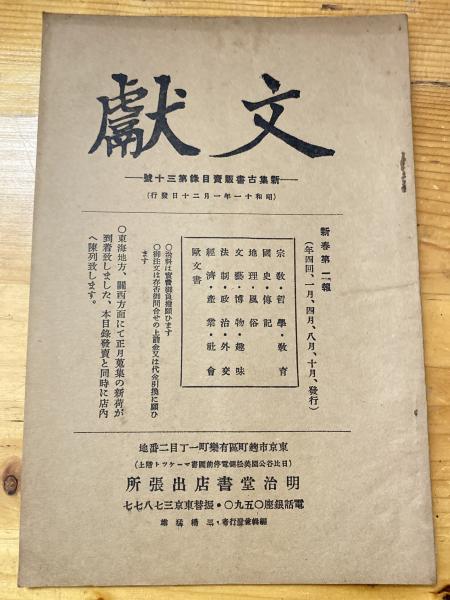 文獻
新集古書販賣目錄第三十號
(昭和十一年一月二十日發行)
新春第二報
(年四回、一月、四月、八月、十月、發行)
宗敎・哲學・敎育
國史・傳記
地理・風俗
文藝・博物・趣味
法制・政治・外交
經濟・產業・社會
歐文書
○送料は實費御負擔願ひます
○御注文は存否御問合せの上前金又は代金引換に願ひ
ます
○東海地方、關西方面にて正月蒐集の新荷が
到着致しました、本目錄發賣と同時に店內
へ陳列致します。
東京市麴町區有樂町一丁目二番地
(日比谷公園美松側電停前圖書マーケツト階上)
明治堂書店出張所
電話銀座〇五九〇・振替東京三七八七七
編輯兼發行者・三橋猛雄